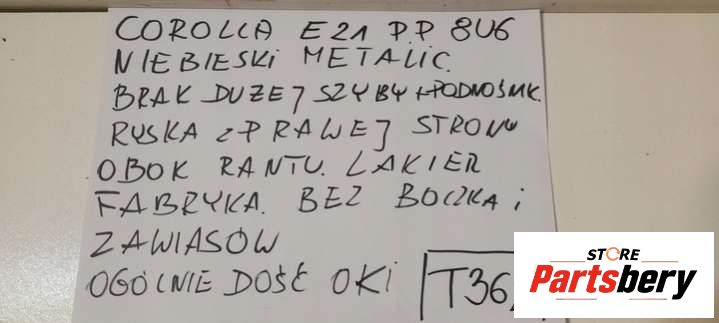 COROLLA E21 P.P 8U6
NIEBIESKI METALIC.
BRAK DUŻEJ SZYBY + PODNOŚNIK.
RYSKA Z PRAWEJ STRONY
OBOK RANTU. LAKIER
FABRYKA. BEZ BOCZKA i
ZAWIASÓW
OGÓLNIE DOŚĆ OKi
T36
STORE
Partsbery